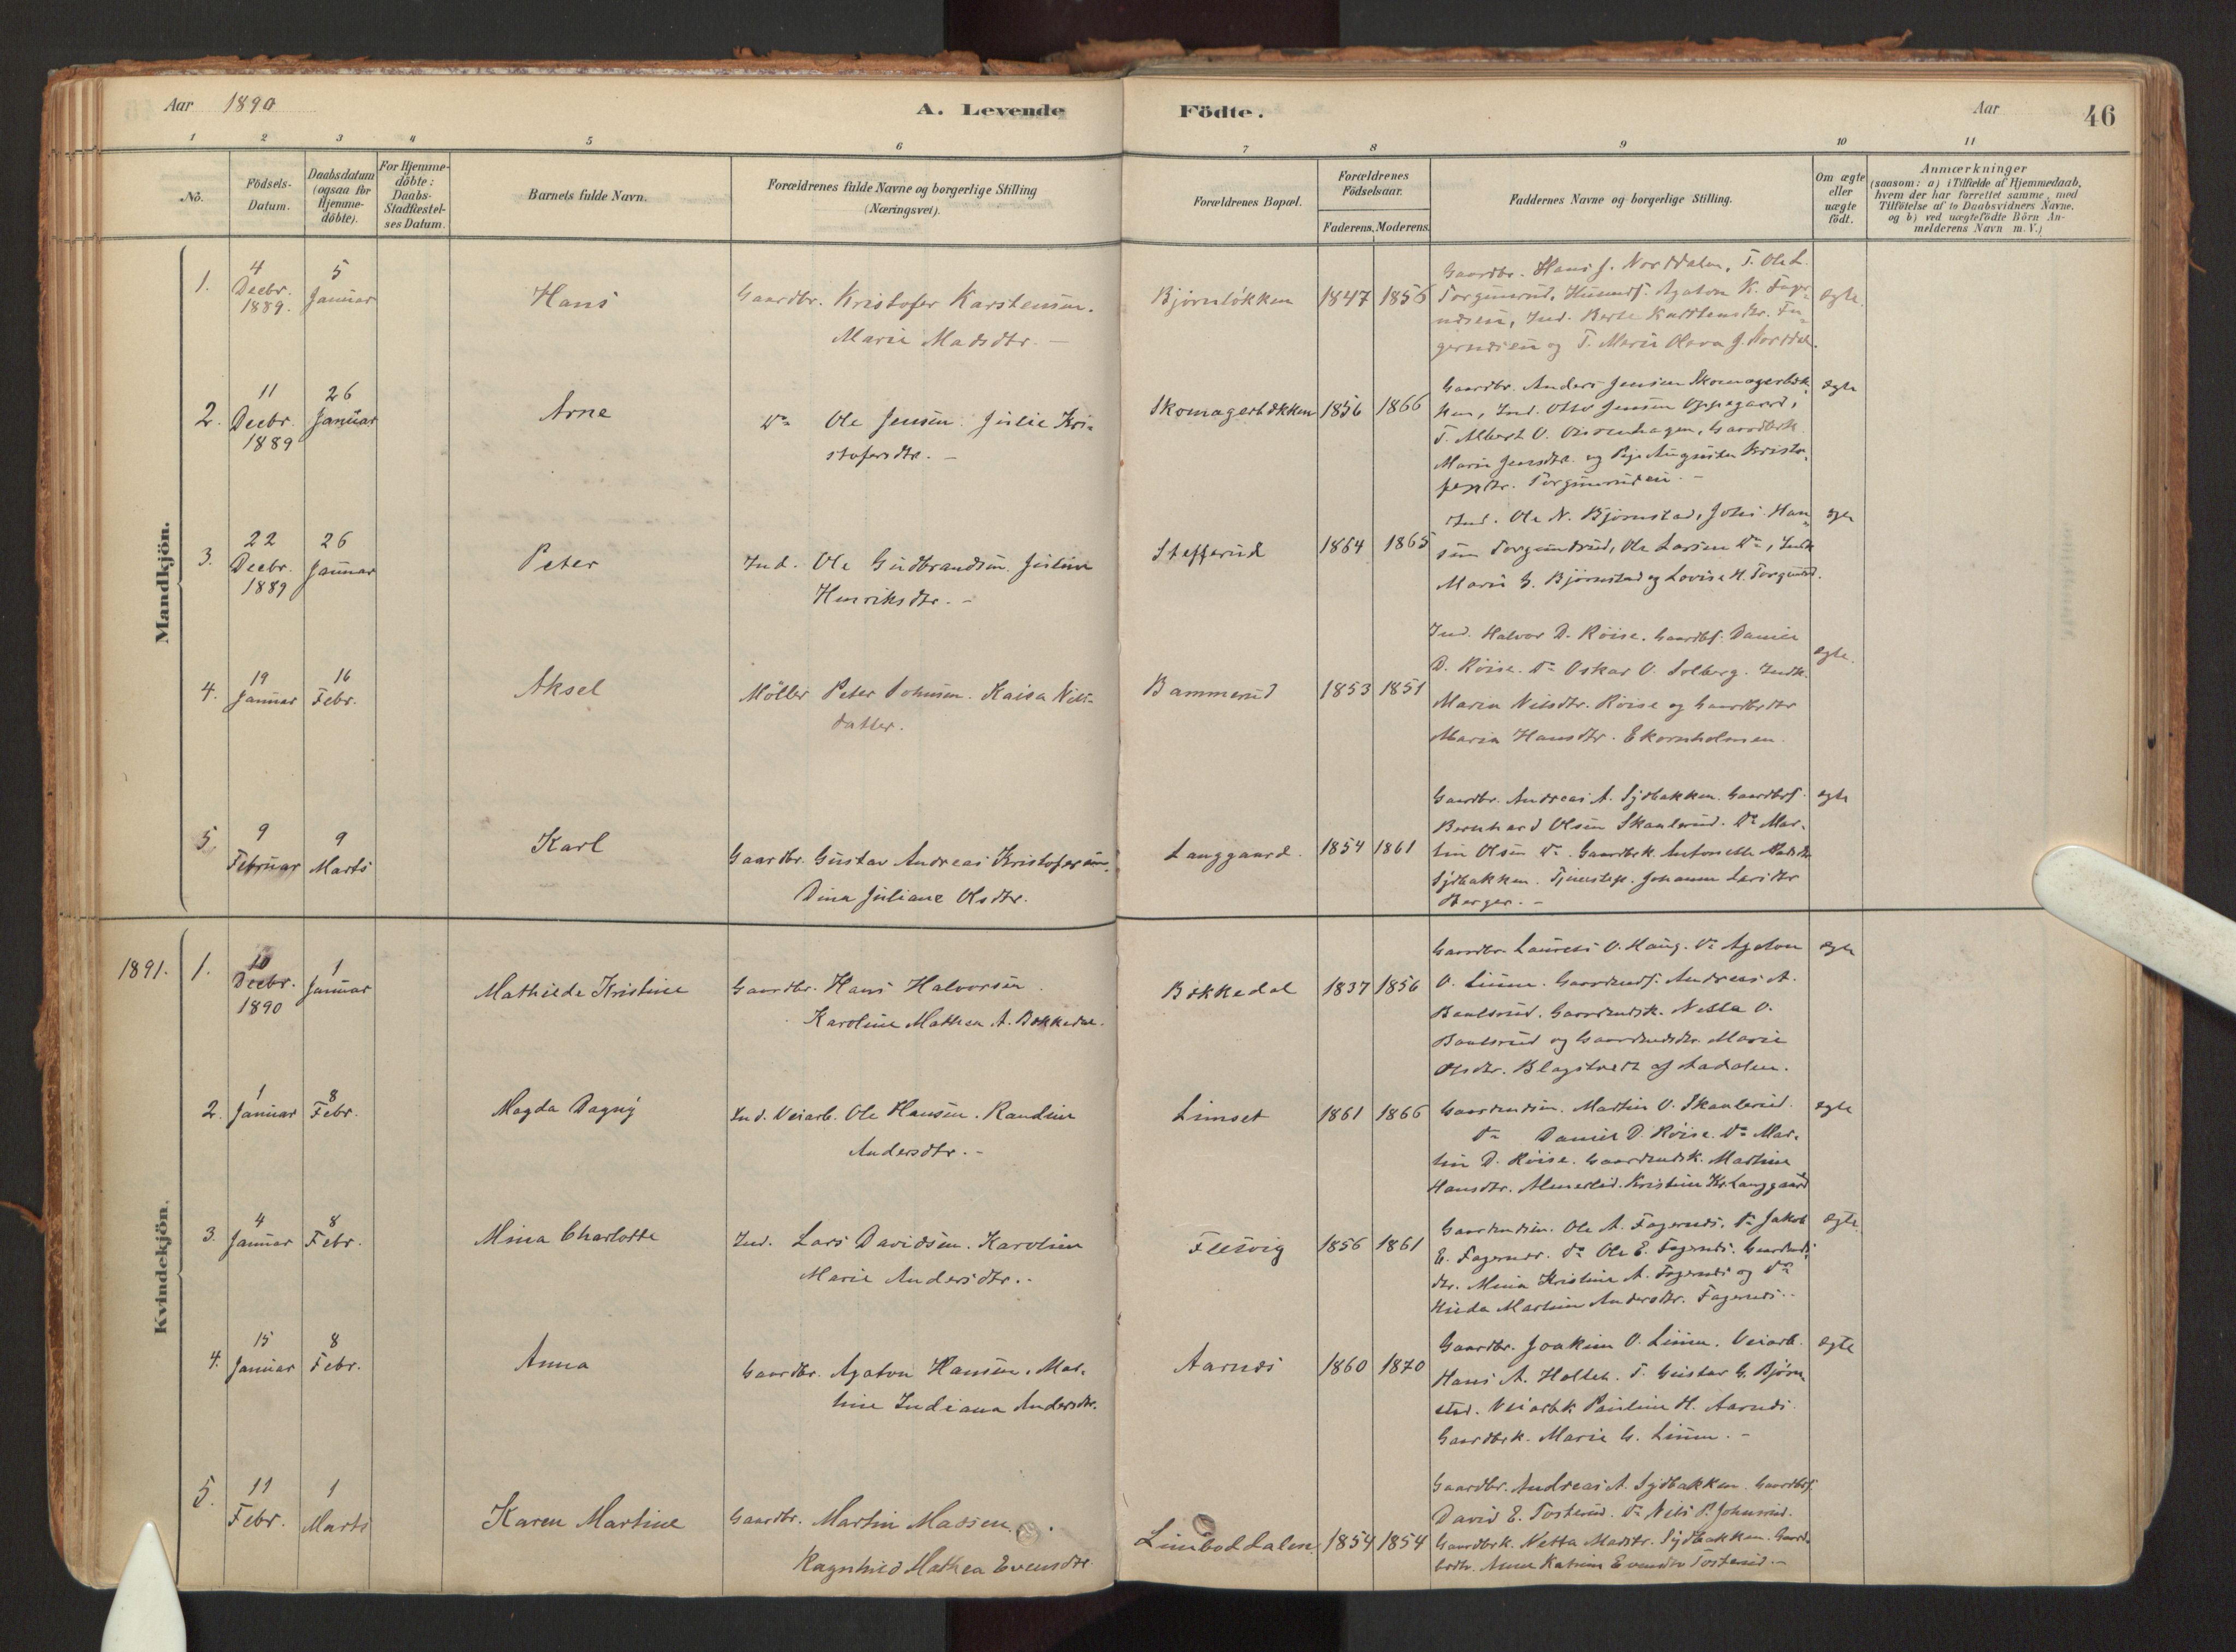 Aar 1890
A. Levende Födte.
Aar
46
1 2 3 4 5 6 7 8 9 10 11
No.
Födsels-Datum.
Daabsdatum (ogsaa for Hjemme-döbte).
For Hjemme-döbte: Daabs-Stadfæstel-ses Datum.
Barnets fulde Navn.
Forældrenes fulde Navne og borgerlige Stilling (Næringsvei).
Forældrenes Bopæl.
Forældrenes Födselsaar.
Faderens. Moderens.
Faddernes Navne og borgerlige Stilling.
Om ægte eller uægte födt.
Anmærkninger
(saasom: a) i Tilfælde af Hjemmedaab,
hvem der har forrettet samme, med
Tilföielse af to Daabsvidners Navne,
og b) ved uægtefödte Börn An-
melderens Navn m. V.)
Mandkjön.
1. 4 Decbr. 1889. 5 Januar Hans
Gaardbr. Kristofer Karstensen.
Marie Madsdtr. -
Bjørnløkken 1847 1856
Gaardbr. Hans J. Norddalen, T. Ole L.
ægte.
2. 11 Decbr. 1889 26 Januar Arne
Do Ole Jensen. Julie Kri-
stofersdtr. -
Skomagerbækken 1856 1866
Gaardbr. Anders Jensen Skomagerbæk-
ken, Ind. Otto Jensen Oppegaard,
Marie Jensdtr. og Pige Augusta Kristo-
fersdtr. Torgunruden. -
ægte
3. 22 Decbr. 1889 26 Januar Peter
Ind. Ole Gudbrandsen. Juline
Henriksdtr. -
Stefferud 1864 1865
Ind. Ole N. Bjørnstad, Johs. Han-
sen Torgunrud, Ole Larsen Do, Indk.
Marie G. Bjørnstad og Lovise H. Torgunrud.
ægte
4. 19 Januar 16 Febr. Aksel
Møller Peter Johnsen. Kaisa Niels-
datter.
Bammerud 1853 1851
Ind. Halvor D. Røise. Gaardbs. Daniel
D. Røise. Do Oskar O. Solberg. Indk.
Maren Nilsdtr. Røise og Gaardbrdtr
Maria Hansdtr. Ekornholmen.
ægte.
5. 9 Februar 9 Marts Karl
Gaardbr. Gustav Andreas Kristofersen.
Dina Juliane Olsdtr.
Langgaard. 1854 1861
Gaardbr. Andreas A. Sydbakken. Gaardbrs.
Bernhard Olsen Skaulerud. Do Mar-
tin Olsen Do. Gaardbrk. Antonette Madsdtr
Sydbakken. Tjenestep. Johanne Larsdtr
Berger. -
ægte
Kvindekjön.
1891. 1. 10 Decbr. 1890 1 Januar Mathilde Kristine
Gaardbr. Hans Halvorsen.
Karoline Mathea A. Bækkedal.
Bækkedal 1837 1856
Gaardbr. Laurets O. Haug. Do Agaton
O. Limm. Gaardmds. Andreas A.
Baulsrud. Gaardmdsk. Netta O.
Baulsrud og Gaardmdsdtr. Marie
Olsdtr. Blagstvedt af Aadalen.
ægte
2. 1 Januar 8 Febr. Magda Dagny
Ind. Veiarb. Ole Hansen. Randine
Andersdtr. -
Limset 1861 1866
Gaardmdsen. Martin O. Skaulerud.
Do Daniel D. Røise. Do Mar-
tin D. Røise. Gaardmdsk. Martine
Hansdtr. Almerlid. Kristine Kr. Langgaard
ægte
3. 4 Januar 8 Febr. Mina Charlotte
Ind. Lars Davidsen. Karoline
Marie Andersdtr. -
Flesvig 1856 1861
Gaardmdsen. Ole A. Fagernes. Do Jakob
E. Fagernes. Do Ole E. Fagernes. Gaardmds
dtr. Mina Kristine A. Fagernes og Do
Hilda Martine Andersdtr. Fagernes. -
ægte
4. 15 Januar 8 Febr. Anna
Gaardbr. Agaton Hansen. Mat-
hine Indiana Andersdtr.
Aarnes 1860 1870
Gaardbr. Joakim O. Limm. Veiarb.
Hans A. Holteh. T. Gustav G. Bjørn-
stad. Veiarbk. Pauline H. Aarnes.
Gaardbrk. Marie G. Limm. -
ægte
5. 11 Febr. 1 Marts Karen Martine
Gaardbr. Martin Madsen.
Ragnhild Mathea Evensdtr.
Limboddalen 1854 1854
Gaardbr. Andreas A. Sydbakken. Gaardbrs.
David E. Tosterud. Do Nils P. Johnsrud.
Gaardbrk. Netta Madsdtr. Sydbakken. Gaard-
brdtr. Anne Katrine Evensdtr Tosterud. -